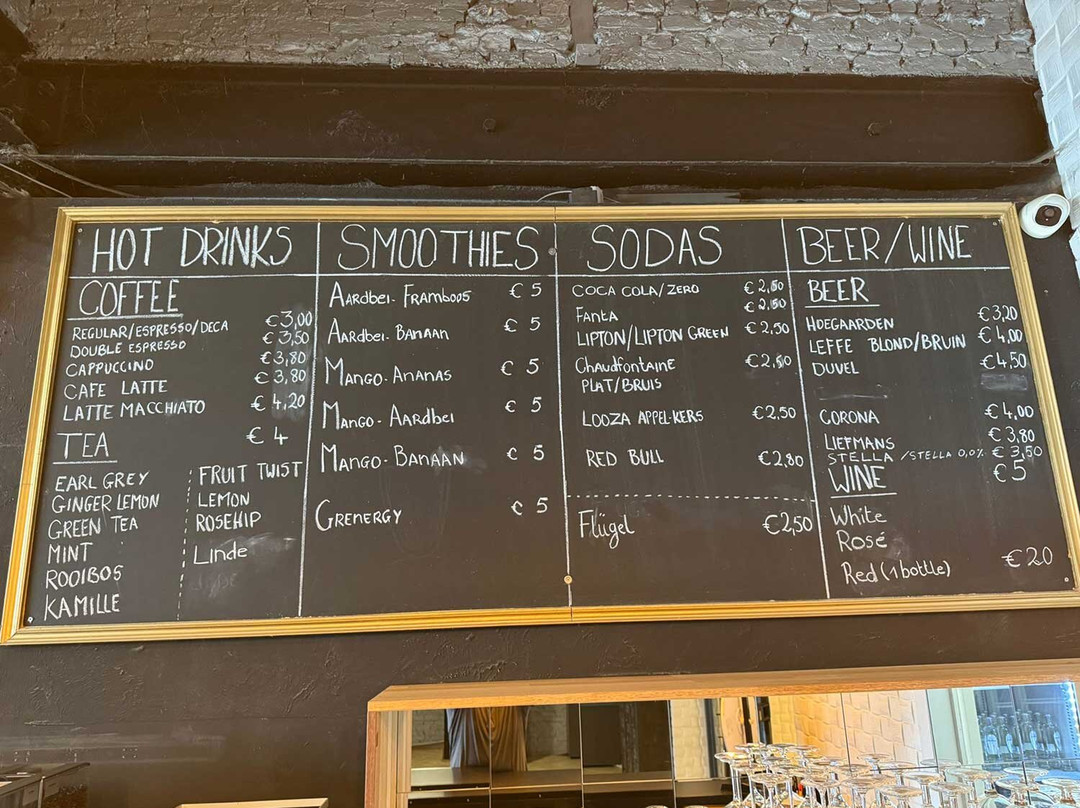 HOT DRINKS
COFFEE
REGULAR/ESPRESSO/DECA €3,00
DOUBLE ESPRESSO €3,50
CAPPUCCINO €3,80
CAFE LATTE €3,80
LATTE MACCHIATO €4,20
TEA €4
EARL GREY
GINGER LEMON
GREEN TEA
MINT
ROOIBOS
KAMILLE
FRUIT TWIST
LEMON
ROSEHIP
Linde
SMOOTHIES
AARDBEI-FRAMBOOS €5
AARDBEI-BANAAN €5
MANGO-ANANAS €5
MANGO-AARDBEI €5
MANGO-BANAAN €5
GRENERGY €5
SODAS
COCA COLA/ZERO €2,50
FANTA €2,50
LIPTON/LIPTON GREEN €2,50
Chaudfontaine €2,50
PLAT/BRUIS
LOOZA APPEL-KERS €2,50
RED BULL €2,80
Flügel €2,50
BEER/WINE
BEER
HOEGAARDEN €3,20
LEFFE BLOND/BRUIN €4,00
DUVEL €4,50
CORONA €4,00
LIEFMANS €3,80
STELLA /STELLA 0,0% €3,50
WINE €5
White
Rosé
Red (1 bottle) €20